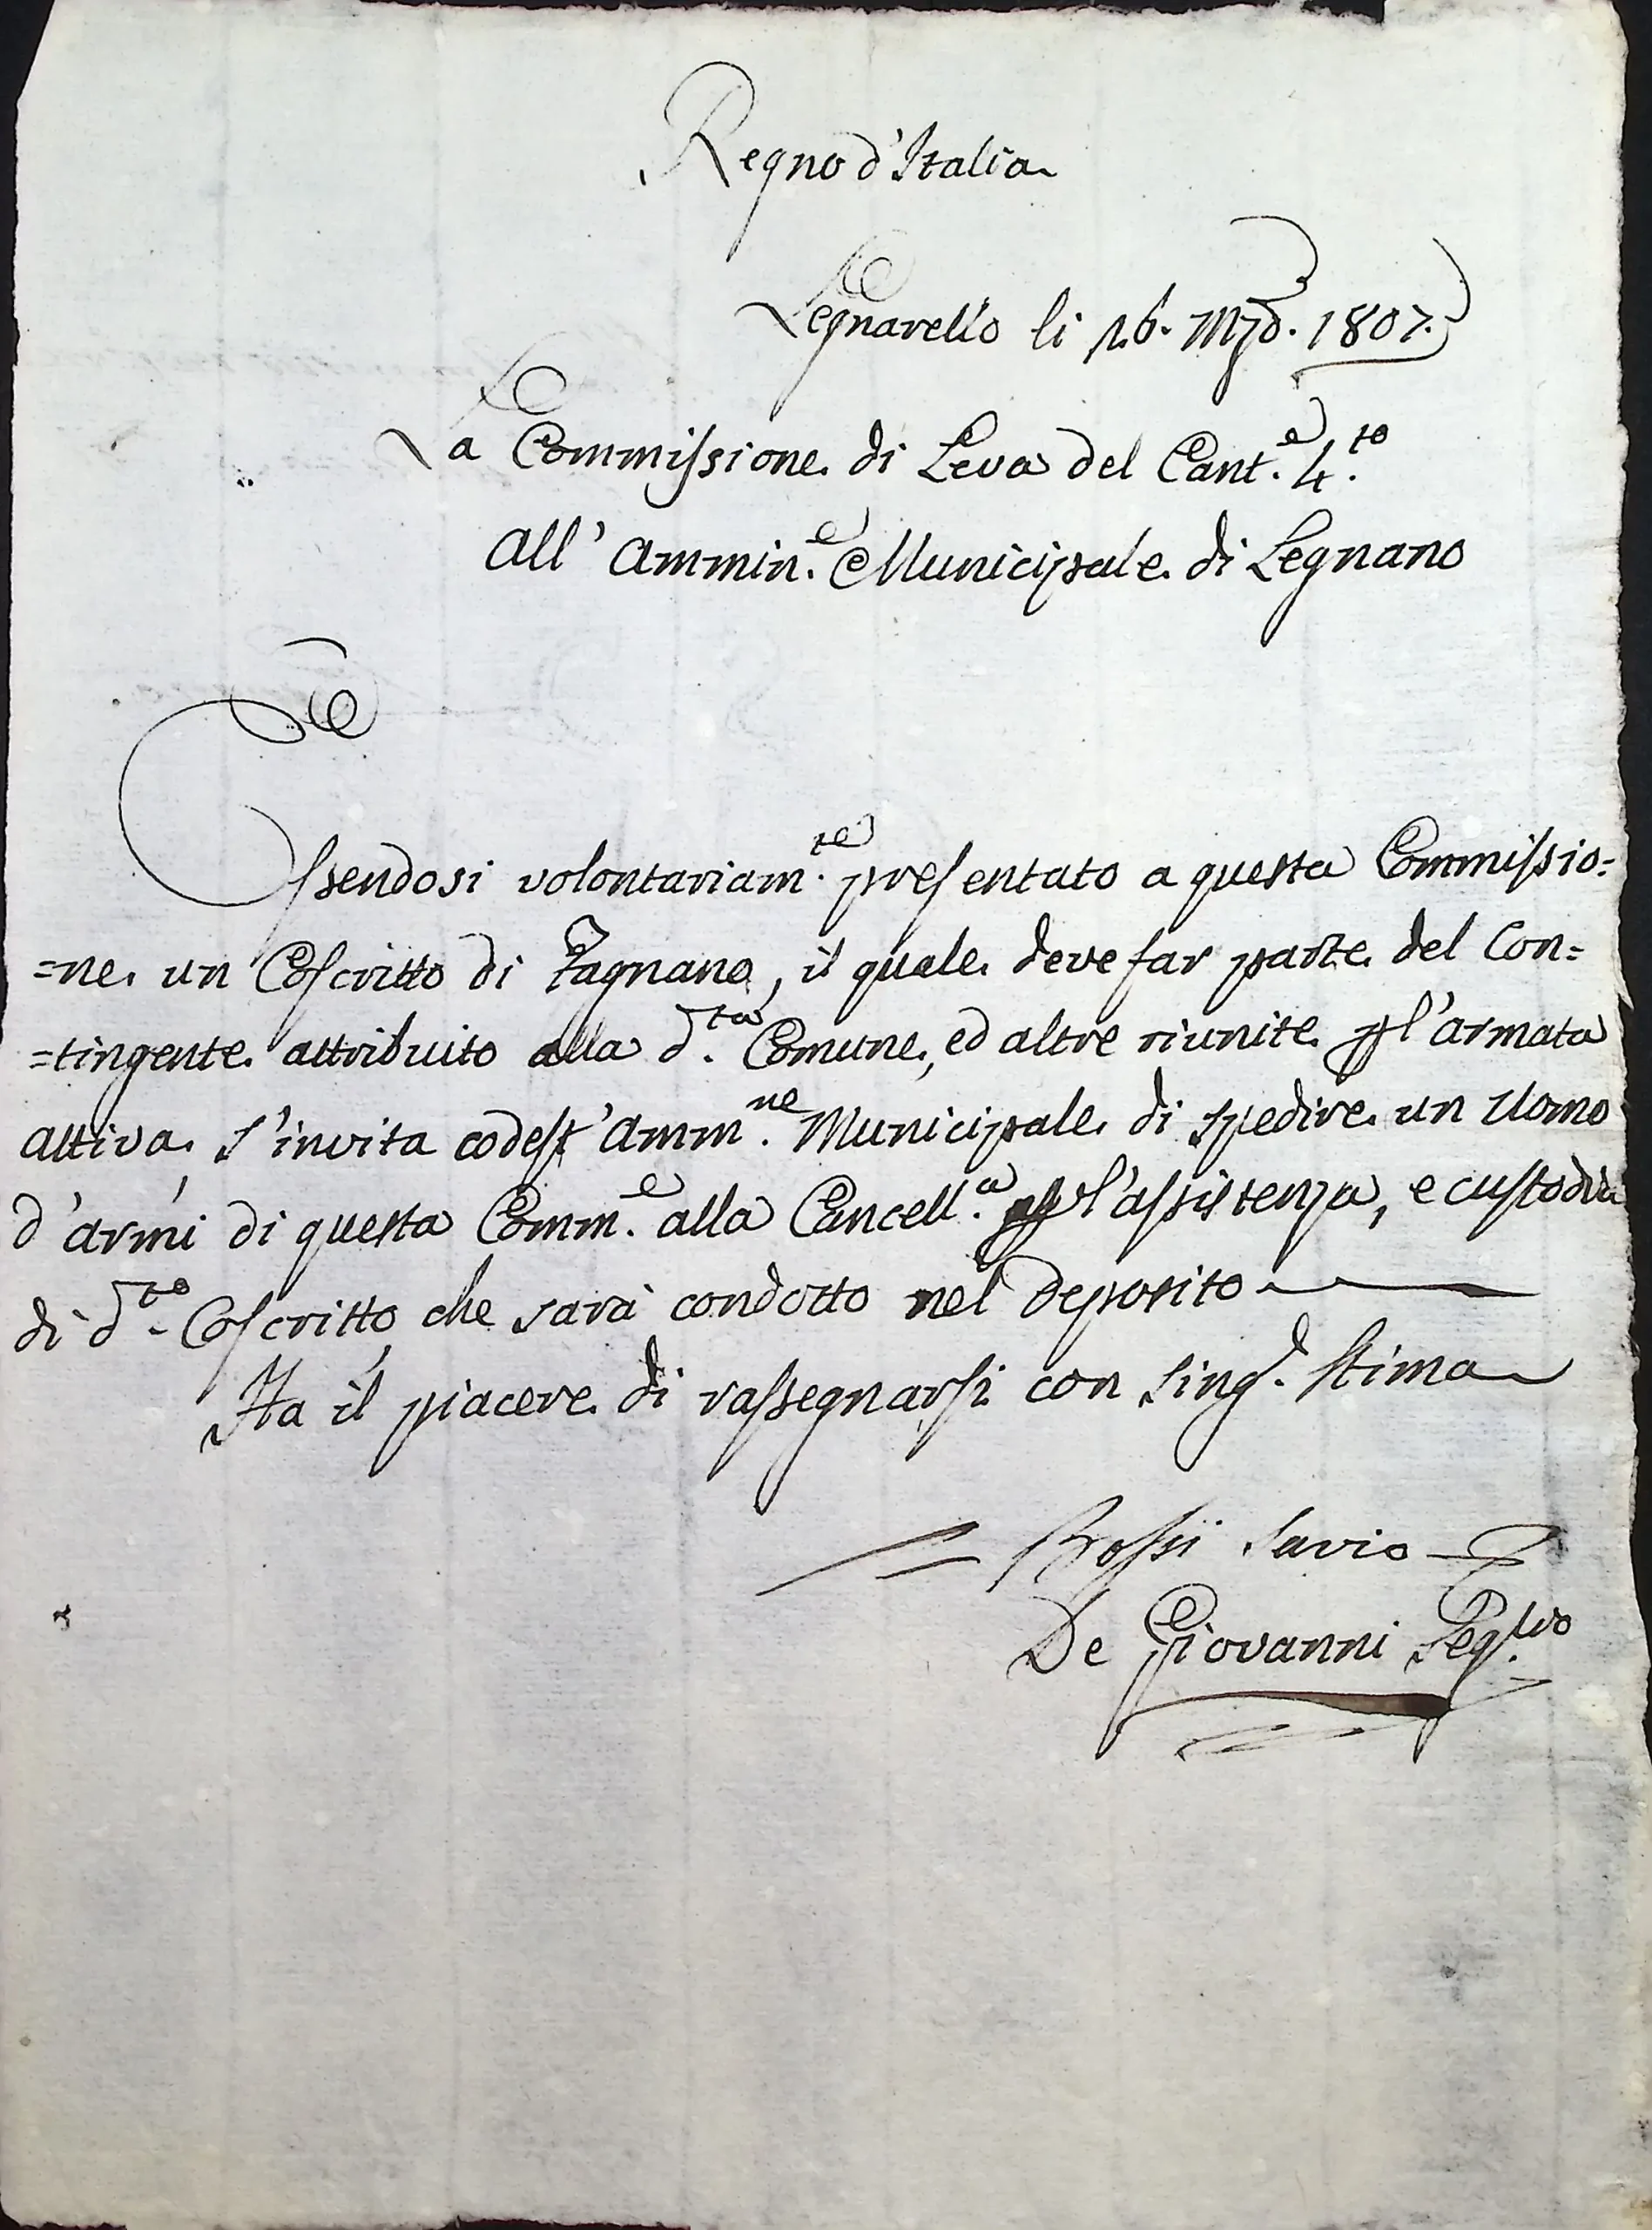 Regno d'Italia
Legnarello li 16. Mzo. 1807.
La Commissione di Leva del Cant.e 4.to
All' Ammin.e Municipale di Legnano
Essendosi volontariam.te presentato a questa Commissio=
=ne un Coscritto di Fagnano, il quale deve far parte del Con=
=tingente attribuito alla d.ta Comune, ed altre riunite p l'armata
attiva s'invita codest' Amm.ne Municipale di spedire un Uomo
d'armi di questa Comm.e alla Cancell.a p l'assistenza, e custodia
di d.to Coscritto che sarà condotto nel deposito
Ha il piacere di rassegnarsi con sing.e stima
Rossi Savio
De Giovanni Seg.rio